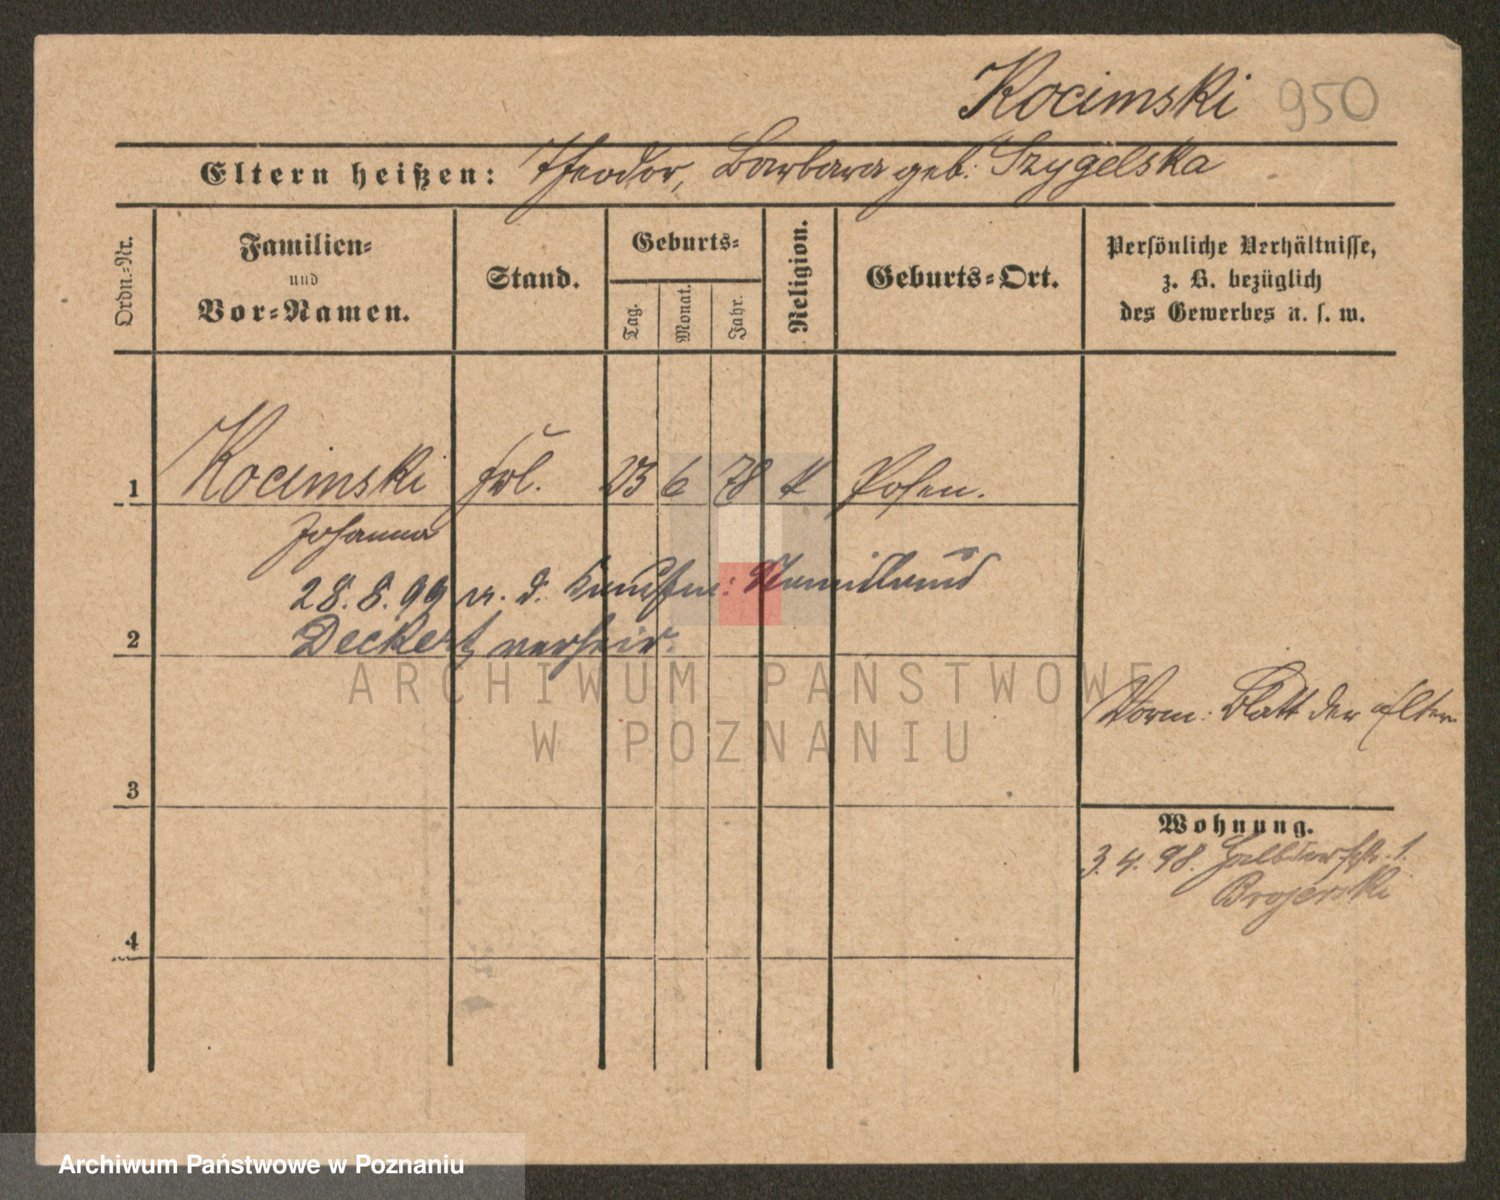 Kocimski 950
Eltern heißen: Theodor, Barbara geb. Szygelska
Ordn.-Nr.
Familien-
und
Vor-Namen.
Stand.
Geburts-
Tag.
Monat.
Jahr.
Religion.
Geburts-Ort.
Persönliche Verhältnisse,
z. B. bezüglich
des Gewerbes u. s. w.
1 Kocimski Frl. 23 6 78 K Posen.
Johanna
28. 8. 99 m. d. Kaufm:
2 Deckert verheir.
ARCHIWUM PAŃSTWOWE
W POZNANIU
Vorm: Blatt der Eltern
3
Wohnung.
3. 4. 98. Halbdorfstr. 1.
Brojerski
4
Archiwum Państwowe w Poznaniu